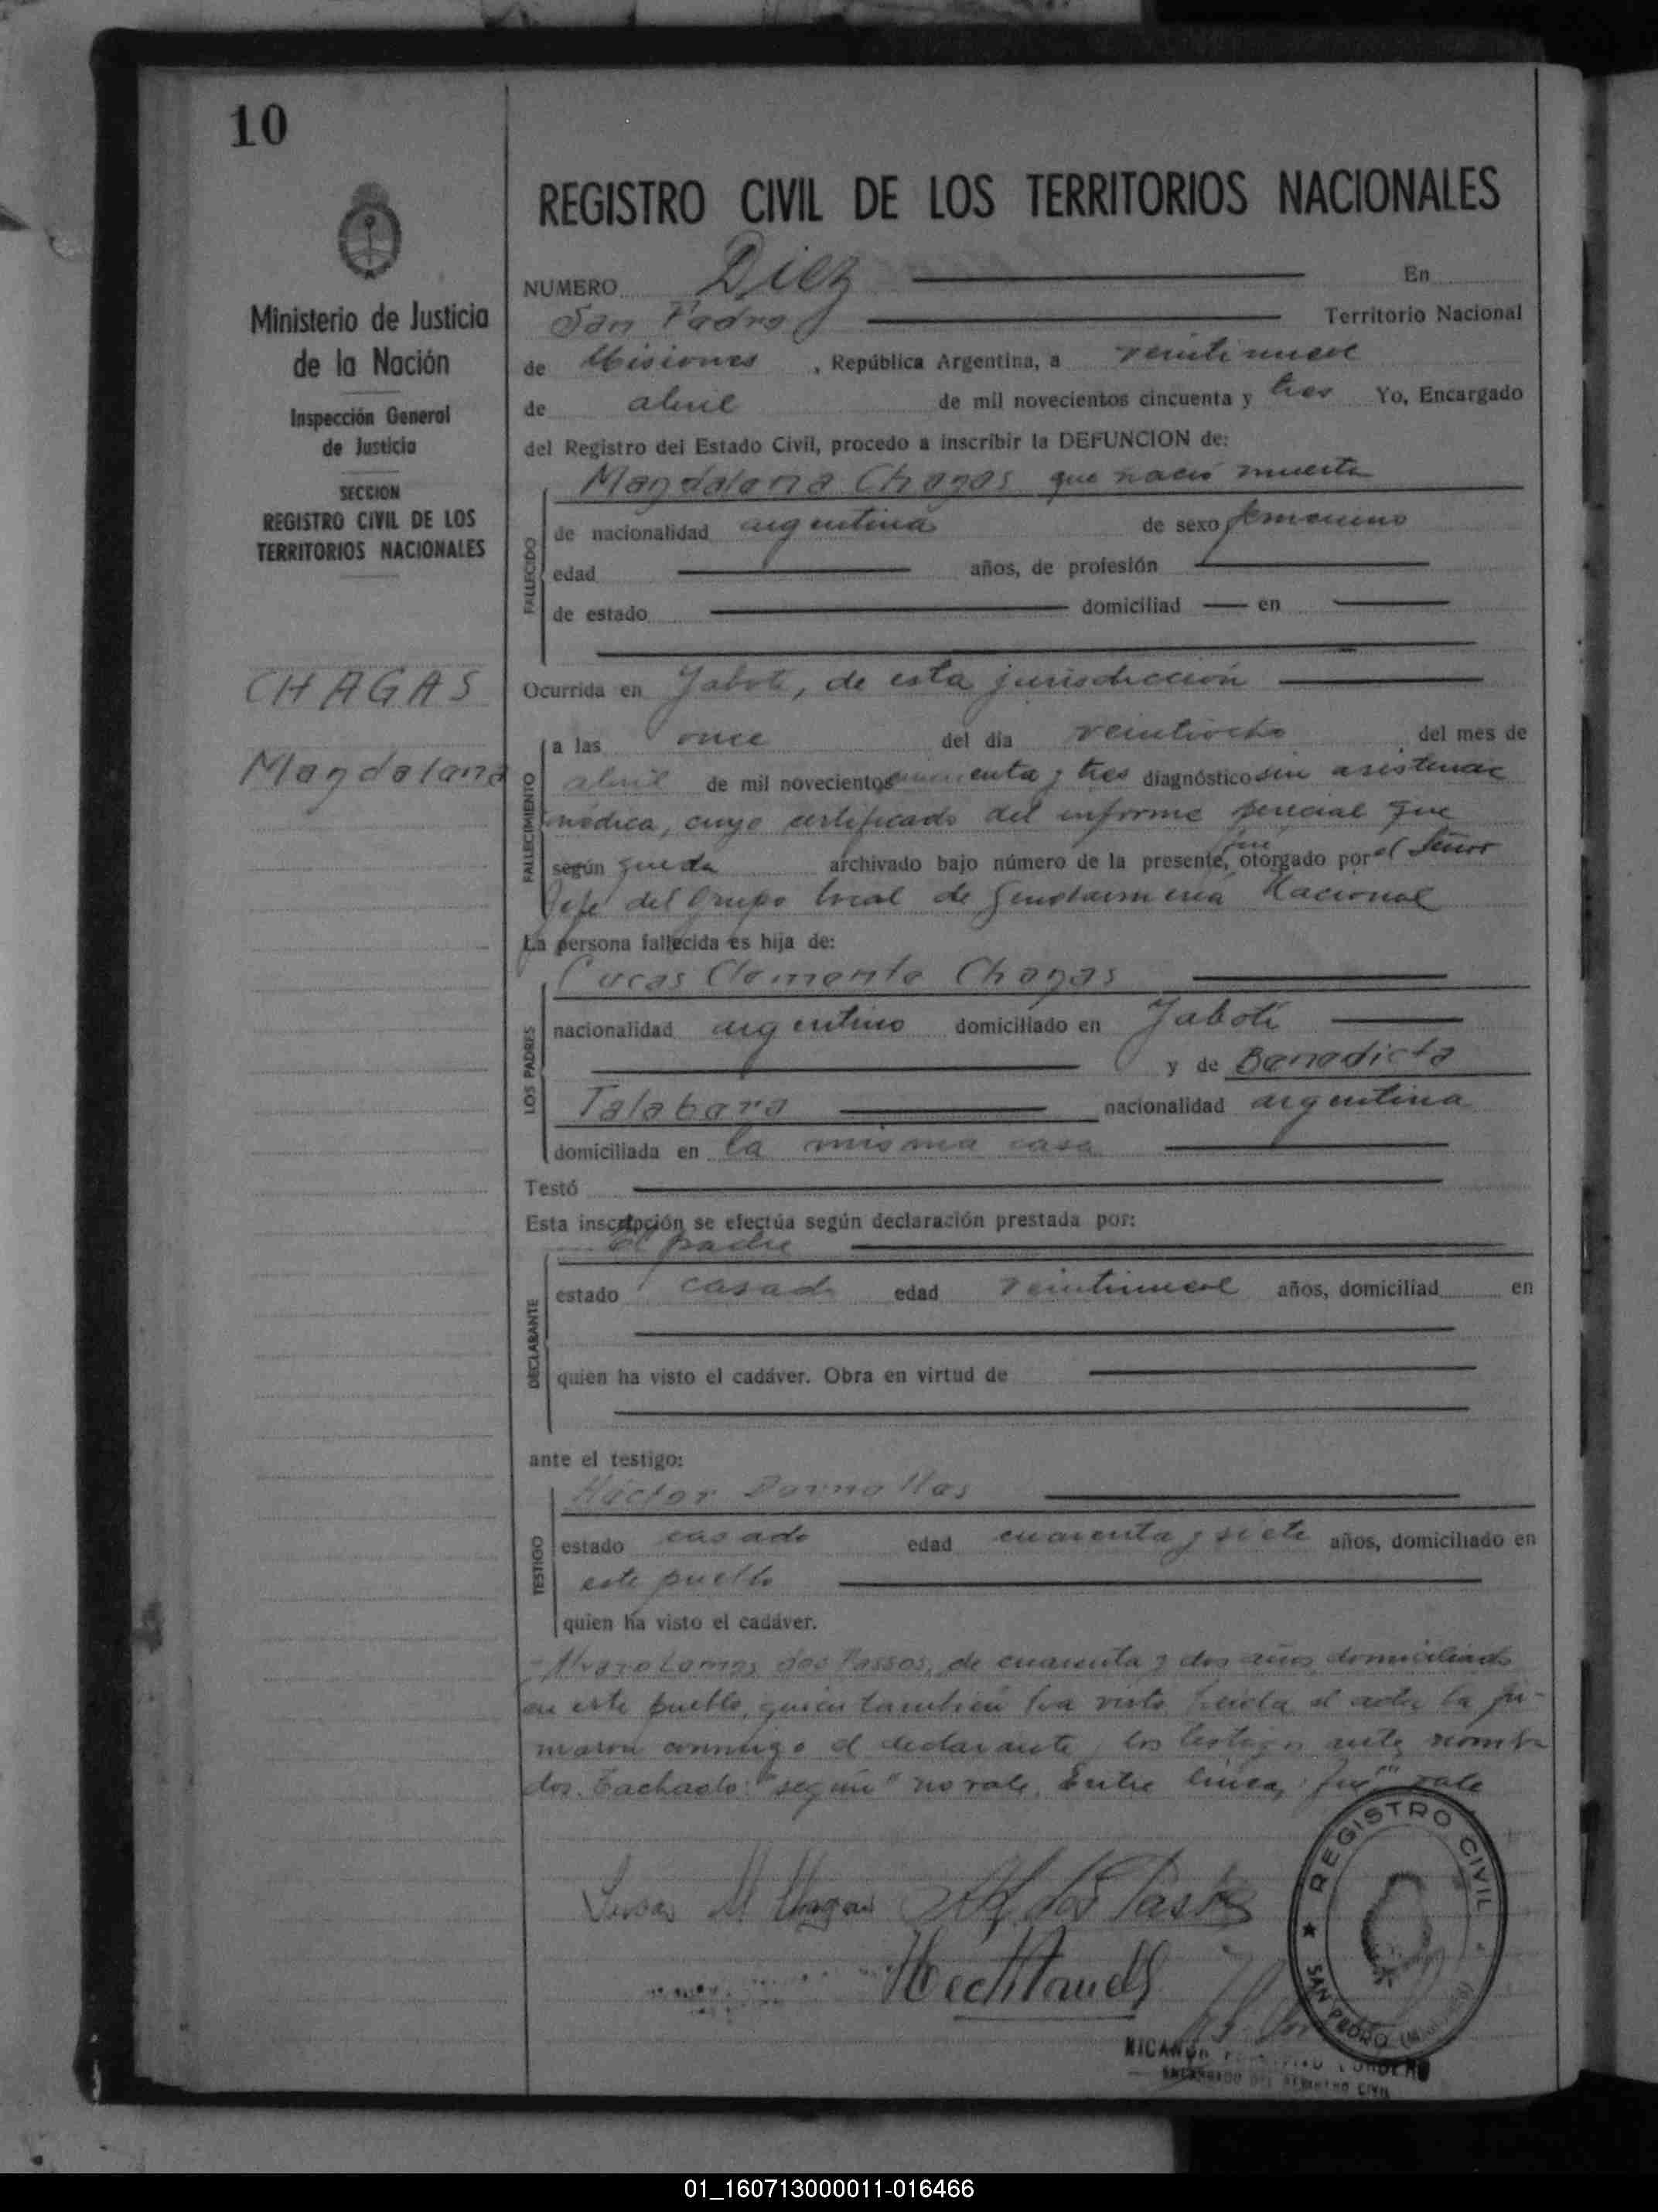 10
Ministerio de Justicia
de la Nación
Inspección General
de Justicia
SECCION
REGISTRO CIVIL DE LOS
TERRITORIOS NACIONALES
CHAGAS
Magdalena
REGISTRO CIVIL DE LOS TERRITORIOS NACIONALES
NUMERO Diez En
San Pedro Territorio Nacional
de Misiones, República Argentina, a veintinueve
de abril de mil novecientos cincuenta y tres Yo, Encargado
del Registro del Estado Civil, procedo a inscribir la DEFUNCION de:
Magdalena Chagas que nació muerta
FALLECIDO
de nacionalidad argentina de sexo femenino
edad años, de profesión
de estado domiciliad en
Ocurrida en Yabotí, de esta jurisdicción
FALLECIMIENTO
a las once del día veintiocho del mes de
abril de mil novecientos cincuenta y tres diagnóstico sin asistencia
médica, cuyo certificado del informe pericial que
según queda archivado bajo número de la presente, fué otorgado por el Señor
Jefe del Grupo local de Gendarmeria Nacional
La persona fallecida es hija de:
LOS PADRES
Lucas Clemente Chagas
nacionalidad argentino domiciliado en Yabotí
y de Benedicta
Talabera nacionalidad argentina
domiciliada en la misma casa
Testó
Esta inscripción se efectúa según declaración prestada por:
DECLARANTE
el padre
estado casado edad veintinueve años, domiciliad en
quien ha visto el cadáver. Obra en virtud de
ante el testigo:
TESTIGO
Héctor
estado casado edad cuarenta y siete años, domiciliado en
este pueblo
quien ha visto el cadáver.
dos Passos, de cuarenta y dos años domiciliado
en este pueblo, quien también ha visto. Leída el acta la fir-
maron conmigo el declarante y los testigos antes nombra
dos. Tachado: "según" no vale. Entre linea, "fué" vale
REGISTRO CIVIL
SAN PEDRO
NICANOR CORDERO
ENCARGADO DEL REGISTRO CIVIL
01_160713000011-016466